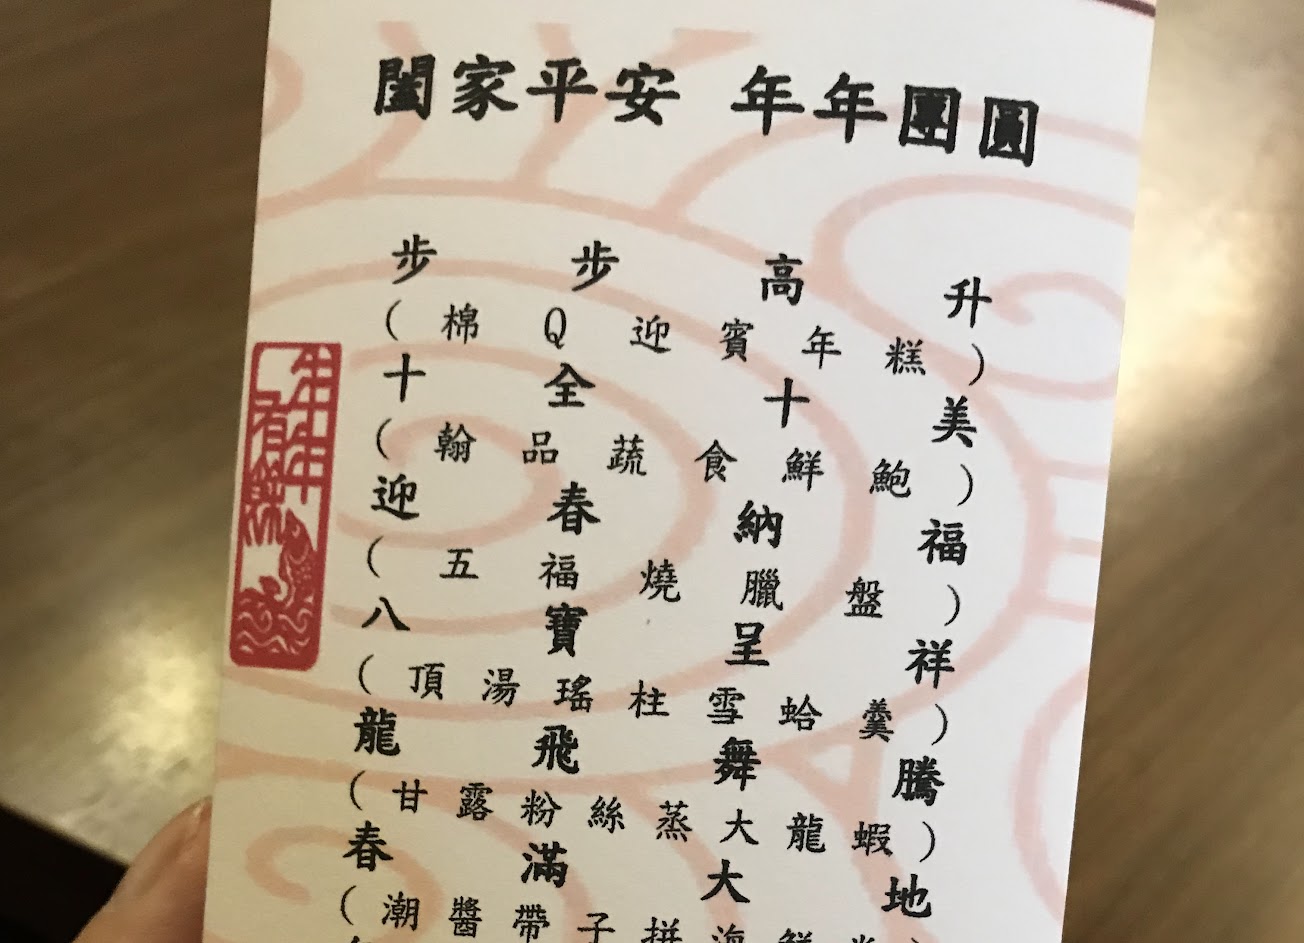 闔家平安 年年團圓
步步高升
(棉Q迎賓年糕)
十全十美
(翰品蔬食鮮鮑)
迎春納福
(五福燒臘盤)
八寶呈祥
(頂湯瑤柱雪蛤羹)
龍飛舞騰
(甘露粉絲蒸大龍蝦)
春滿大地
(潮醬帶子拼海鮮
年年有餘